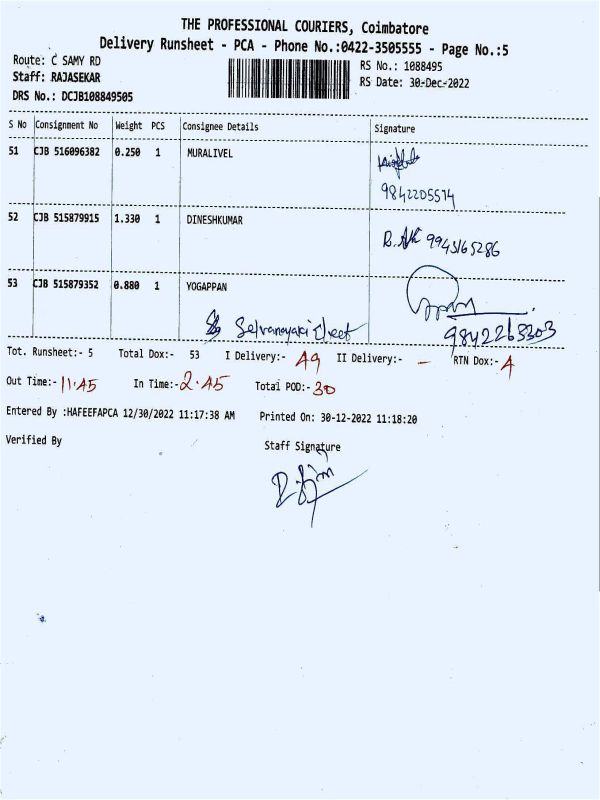 THE PROFESSIONAL COURIERS, Coimbatore
Delivery Runsheet - PCA - Phone No.:0422-3505555 - Page No.:5
Route: C SAMY RD
RS No.: 1088495
Staff: RAJASEKAR
RS Date: 30-Dec-2022
DRS No.: DCJB108849505
S No Consignment No Weight PCS Consignee Details Signature
51 CJB 516096382 0.250 1 MURALIVEL
9842205514
52 CJB 515879915 1.330 1 DINESHKUMAR
9943165286
53 CJB 515879352 0.880 1 YOGAPPAN
9842263303
Tot. Runsheet:- 5 Total Dox:- 53 I Delivery:- 49 II Delivery:- - RTN Dox:- 4
Out Time:- 11.45 In Time:- 2.45 Total POD:- 30
Entered By :HAFEEFAPCA 12/30/2022 11:17:38 AM Printed On: 30-12-2022 11:18:20
Verified By Staff Signature